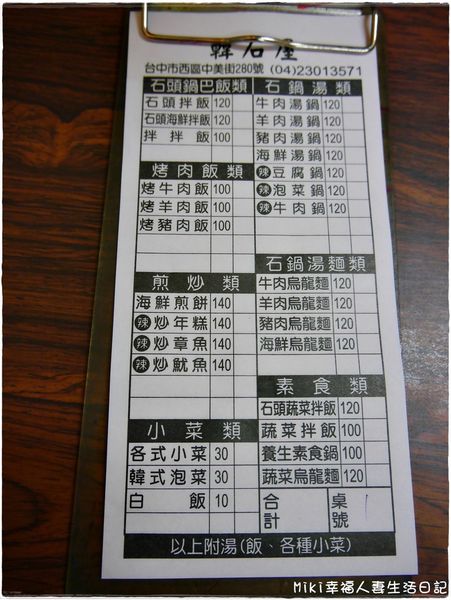 韓石屋
台中市西區中美街280號 (04)23013571
石頭鍋巴飯類
石頭拌飯 120
石頭海鮮拌飯 120
拌拌飯 100
烤肉飯類
烤牛肉飯 100
烤羊肉飯 100
烤豬肉飯 100
煎炒類
海鮮煎餅 140
辣炒年糕 140
辣炒章魚 140
辣炒魷魚 140
小菜類
各式小菜 30
韓式泡菜 30
白飯 10
石鍋湯類
牛肉湯鍋 120
羊肉湯鍋 120
豬肉湯鍋 120
海鮮湯鍋 120
辣豆腐鍋 120
辣泡菜鍋 120
辣牛肉鍋 120
石鍋湯麵類
牛肉烏龍麵 120
羊肉烏龍麵 120
豬肉烏龍麵 120
海鮮烏龍麵 120
素食類
石頭蔬菜拌飯 120
蔬菜拌飯 100
養生素食鍋 100
蔬菜烏龍麵 120
合計 桌號
以上附湯(飯、各種小菜)
Miki幸福人妻生活日記